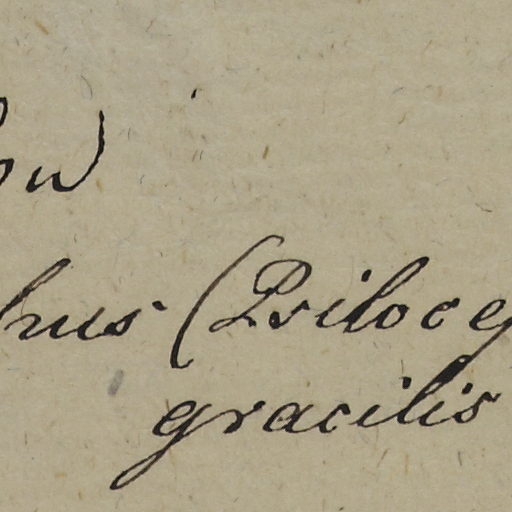 hus (Psiloce
gracilis